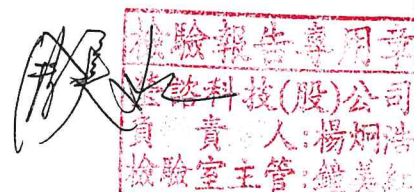 檢驗報告專用章
諮科技(股)公司
負責人:楊炯浩
檢驗室主管:鍾美